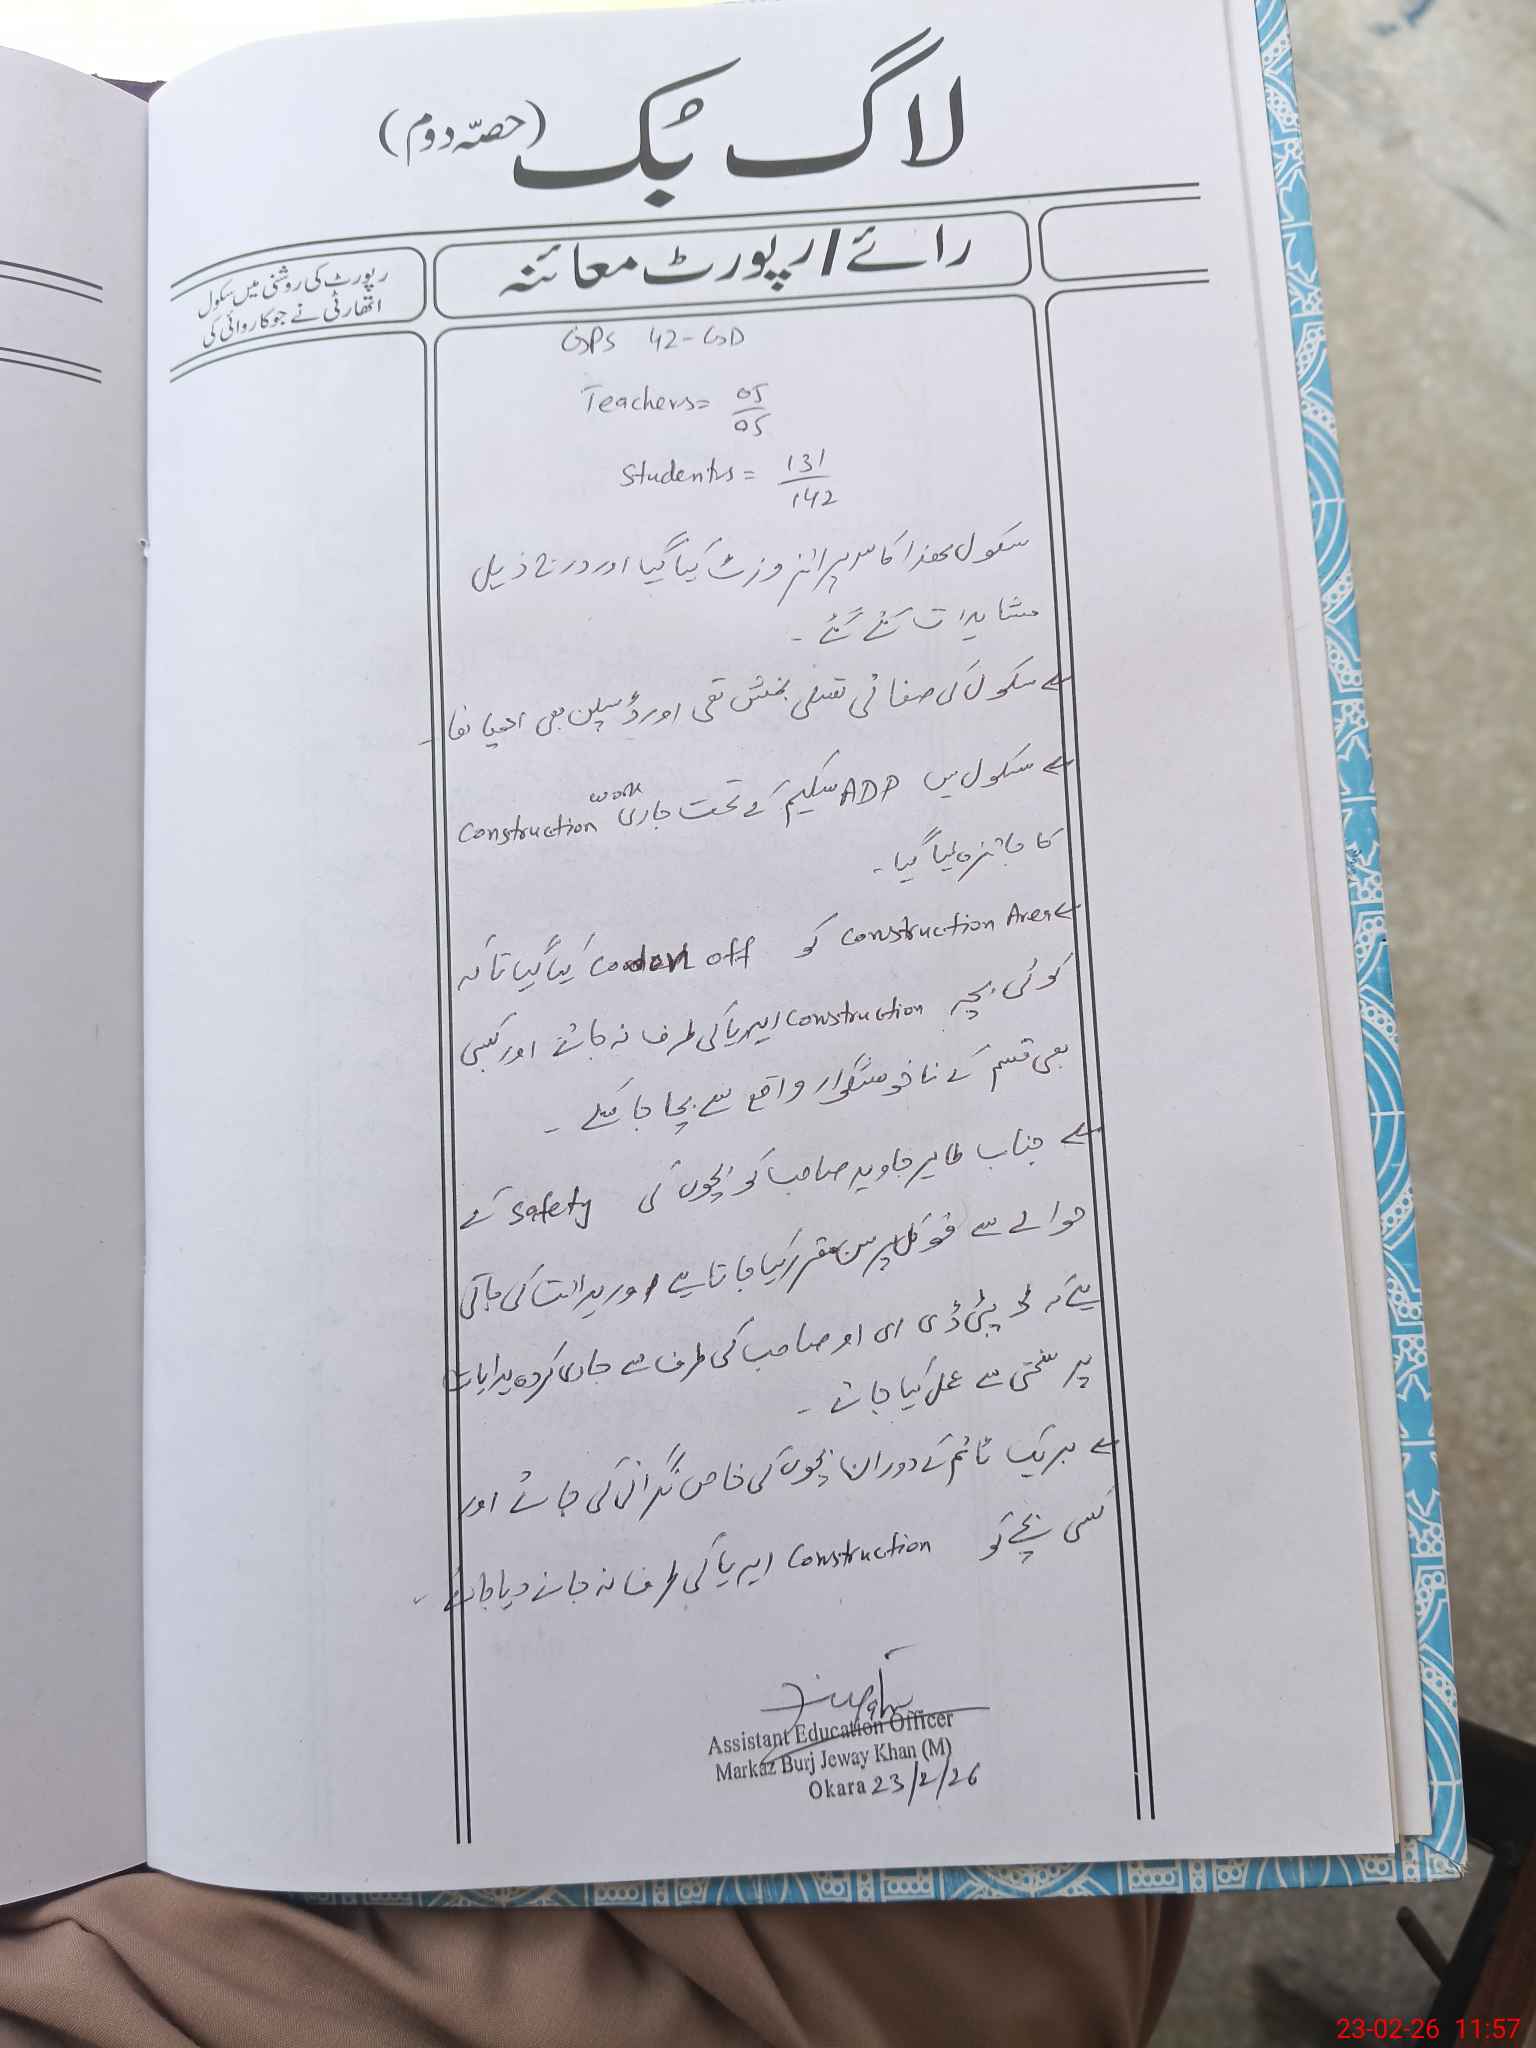 لاگ بُک (حصّہ دوم)
رائے / رپورٹ معائنہ
رپورٹ کی روشنی میں سکول
اتھارٹی نے جو کاروائی کی
GPS 42-GD
Teachers= 05/05
Students= 131/142
سکول ھذا کا سرپرائز وزٹ کیا گیا اور درج ذیل
مشاہدات کئے گئے۔
سکول کی صفائی تسلی بخش تھی اور ڈسپلن بھی اچھا تھا۔
سکول میں ADP سکیم کے تحت جاری Construction work
کا جائزہ لیا گیا۔
Construction Area کو Coodon off کیا گیا تاکہ
کوئی بچہ Construction ایریا کی طرف نہ جائے اور کسی
بھی قسم کے ناخوشگوار واقع سے بچا جا سکے۔
جناب طاہر جاوید صاحب کو بچوں کی Safety کے
حوالے سے فوکل پرسن مقرر کیا جاتا ہے اور ہدایت کی جاتی
ہے کہ ڈپٹی ڈی ای او صاحب کی طرف سے جاری کردہ ہدایات
پر سختی سے عمل کیا جائے۔
بریک ٹائم کے دوران بچوں کی خاص نگرانی کی جائے اور
کسی بچے کو Construction ایریا کی طرف نہ جانے دیا جائے۔
Assistant Education Officer
Markaz Burj Jeway Khan (M)
Okara 23/2/26
23-02-26 11:57